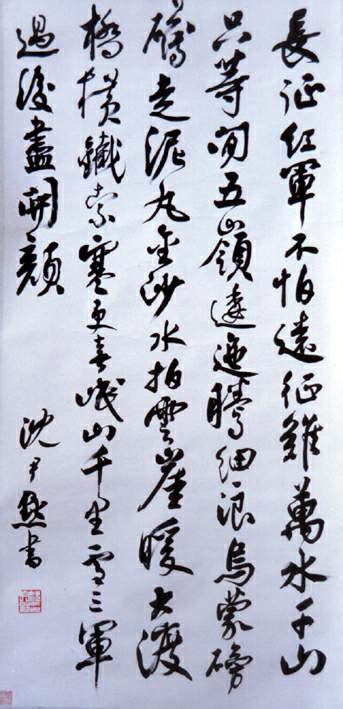 長征紅軍不怕遠征難萬水千山
只等閒五嶺逶迤騰細浪烏蒙磅
礴走泥丸金沙水拍雲崖暖大渡
橋橫鐵索寒更喜岷山千里雪三軍
過後盡開顏
沈尹默書